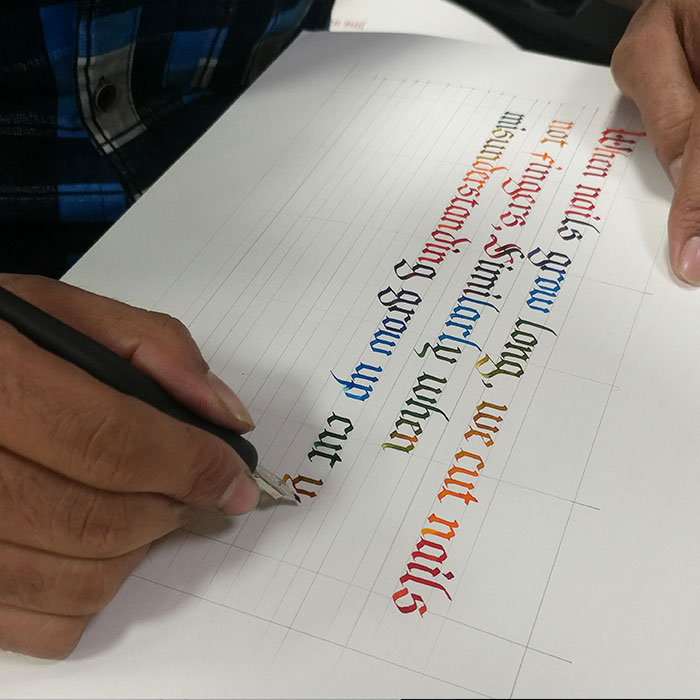 When nails grow long, we cut nails
not fingers, Similarly when
misunderstanding grow up cut y